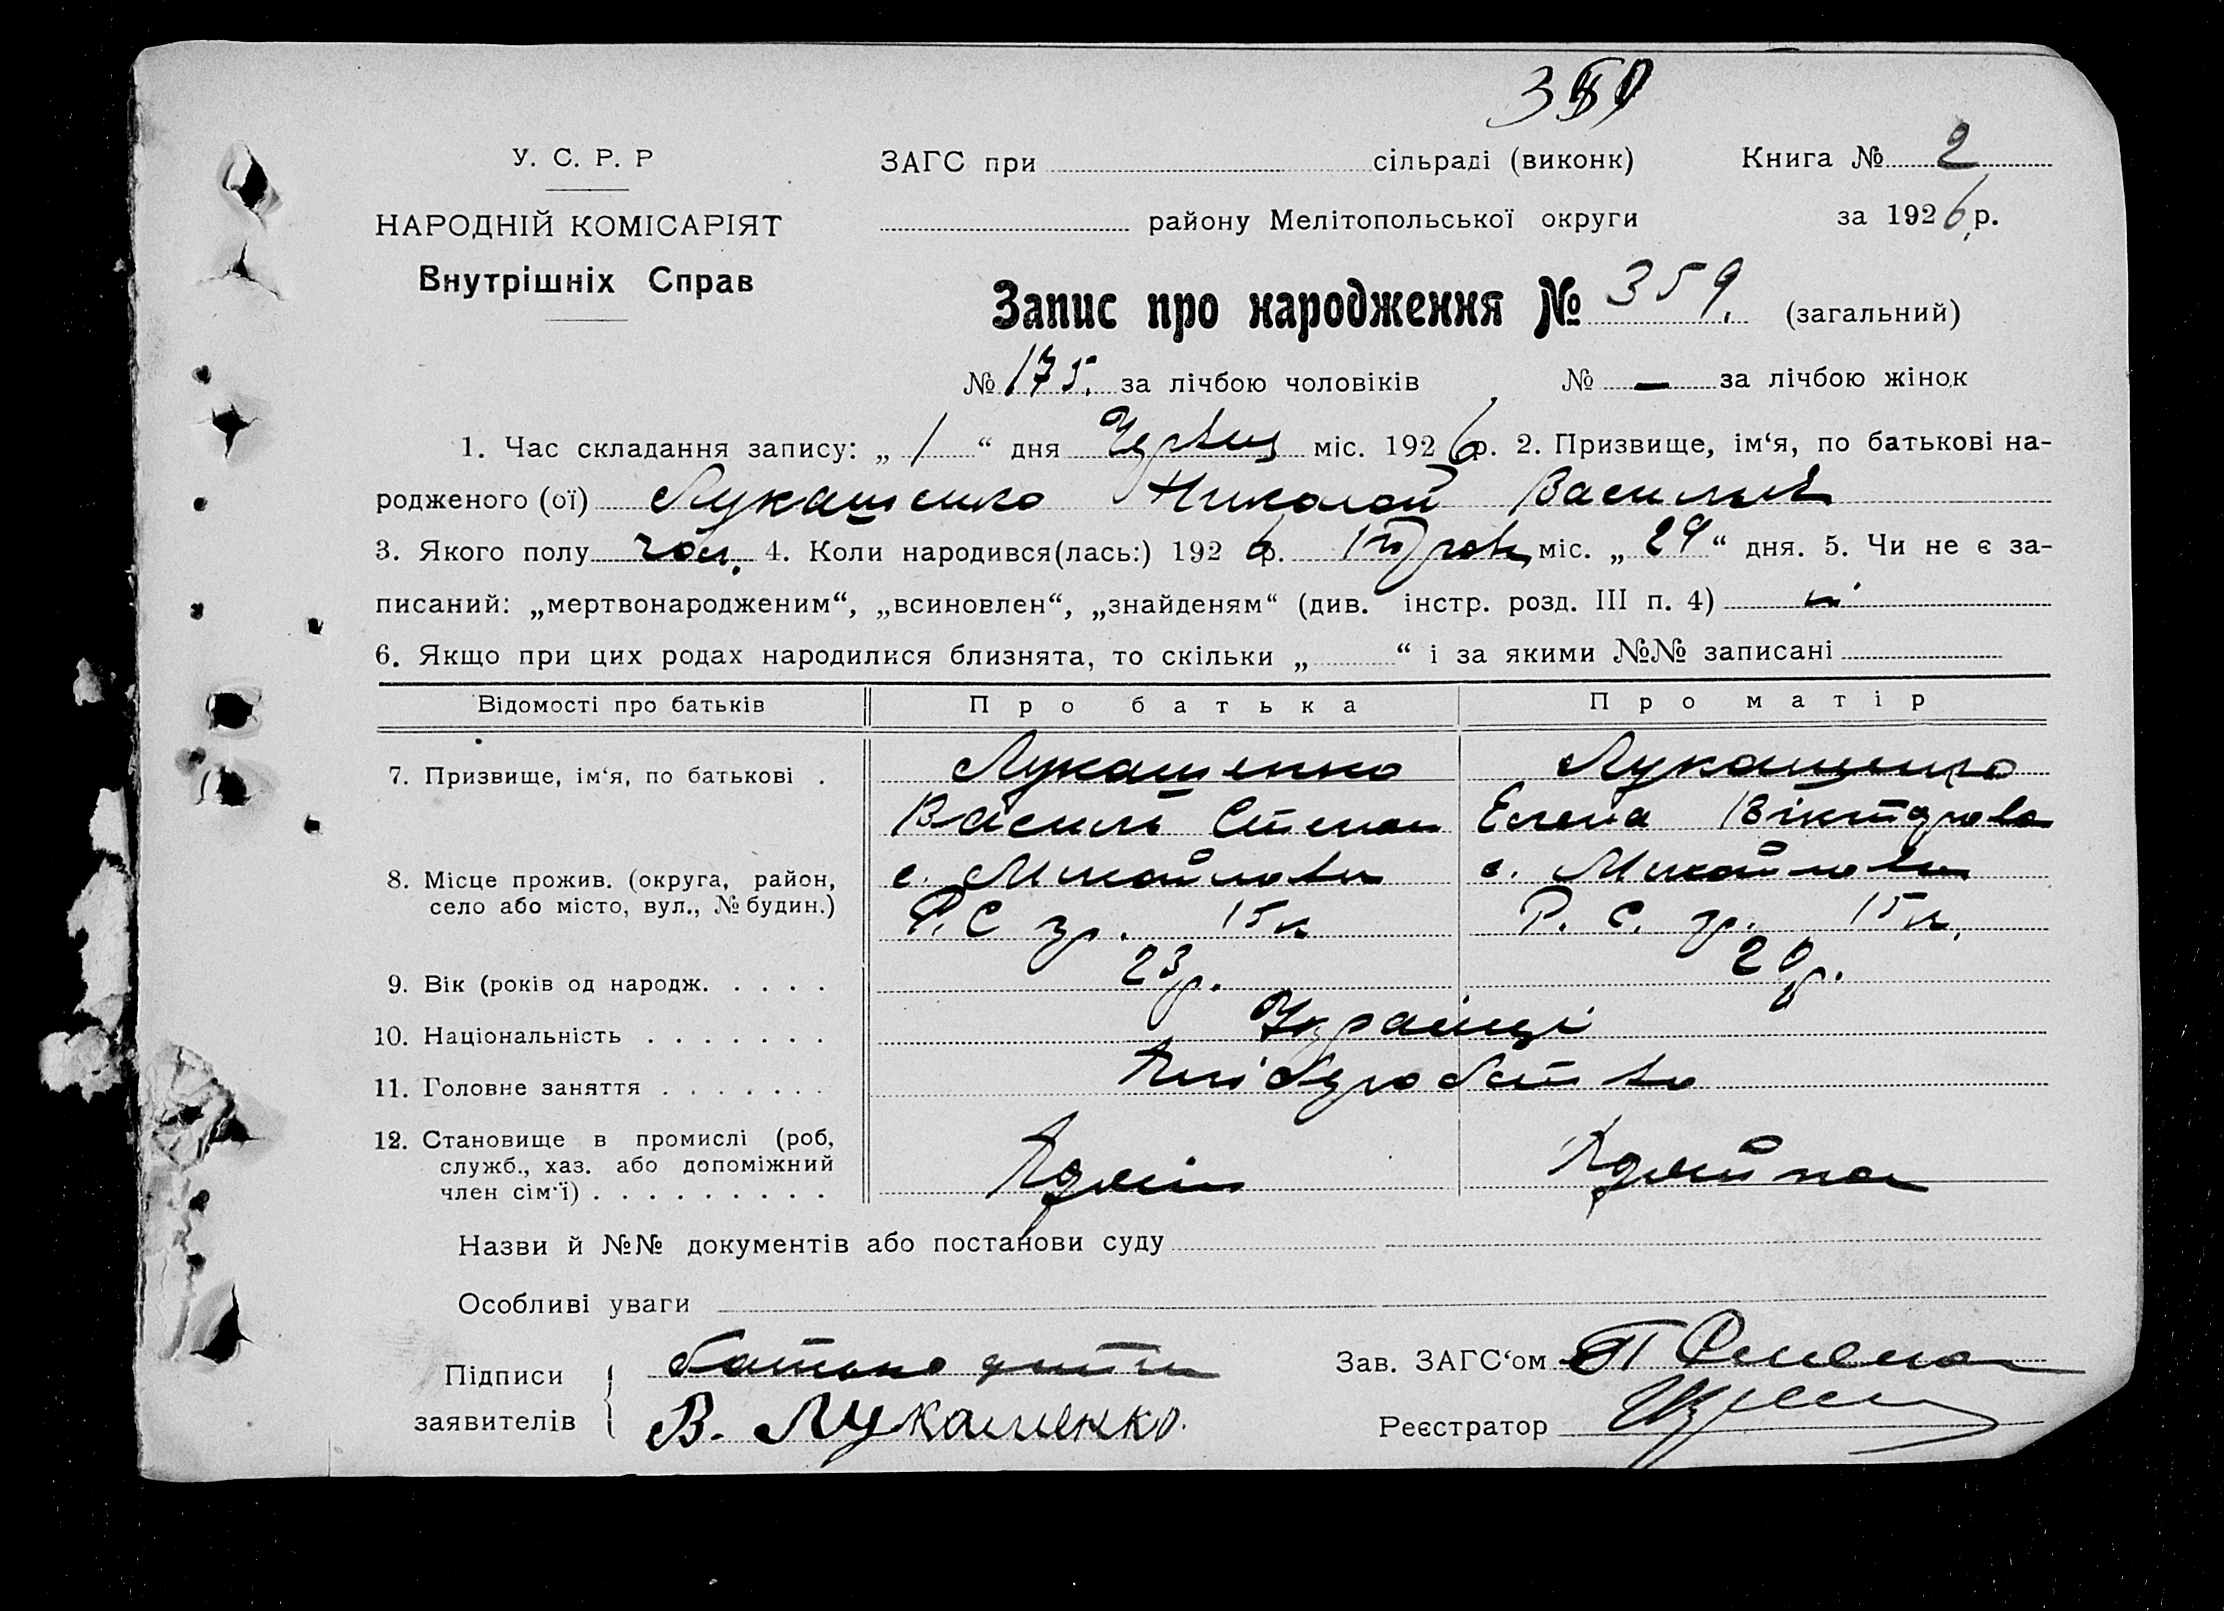 У. С. Р. Р
НАРОДНІЙ КОМІСАРІЯТ
Внутрішніх Справ
ЗАГС при сільраді (виконк)
району Мелітопольської округи
Книга № 2
за 1926 р.
Запис про народження № 359. (загальний)
№ 175. за лічбою чоловіків № — за лічбою жінок
1. Час складання запису: „ 1 “ дня Червця міс. 1926 р. 2. Призвище, ім‘я, по батькові на-
родженого (ої) Лукашенко Николай Васильев
3. Якого полу чол. 4. Коли народився(лась:) 1926 р. міс. „ 29 “ дня. 5. Чи не є за-
писаний: „мертвонародженим“, „всиновлен“, „знайденям“ (див. інстр. розд. III п. 4) ні
6. Якщо при цих родах народилися близнята, то скільки „ “ і за якими №№ записані
Відомості про батьків Про батька Про матір
7. Призвище, ім‘я, по батькові . Лукашенко Лукашенко
Василь Степан Елена Вікторова
8. Місце прожив. (округа, район, с. Михайловка с. Михайловка
село або місто, вул., № будин.) Р. С гр. 15 к Р. С. гр. 15 к.
9. Вік (років од народж. . . . . 23 р. 20 р.
10. Національність . . . . . . . Українці
11. Головне заняття . . . . . . . Хліборобство
12. Становище в промислі (роб,
служб., хаз. або допоміжний
член сім‘ї) . . . . . . . . .
Назви й №№ документів або постанови суду
Особливі уваги
Підписи батько дитини Зав. ЗАГС‘ом
заявителів В. Лукашенко. Реєстратор